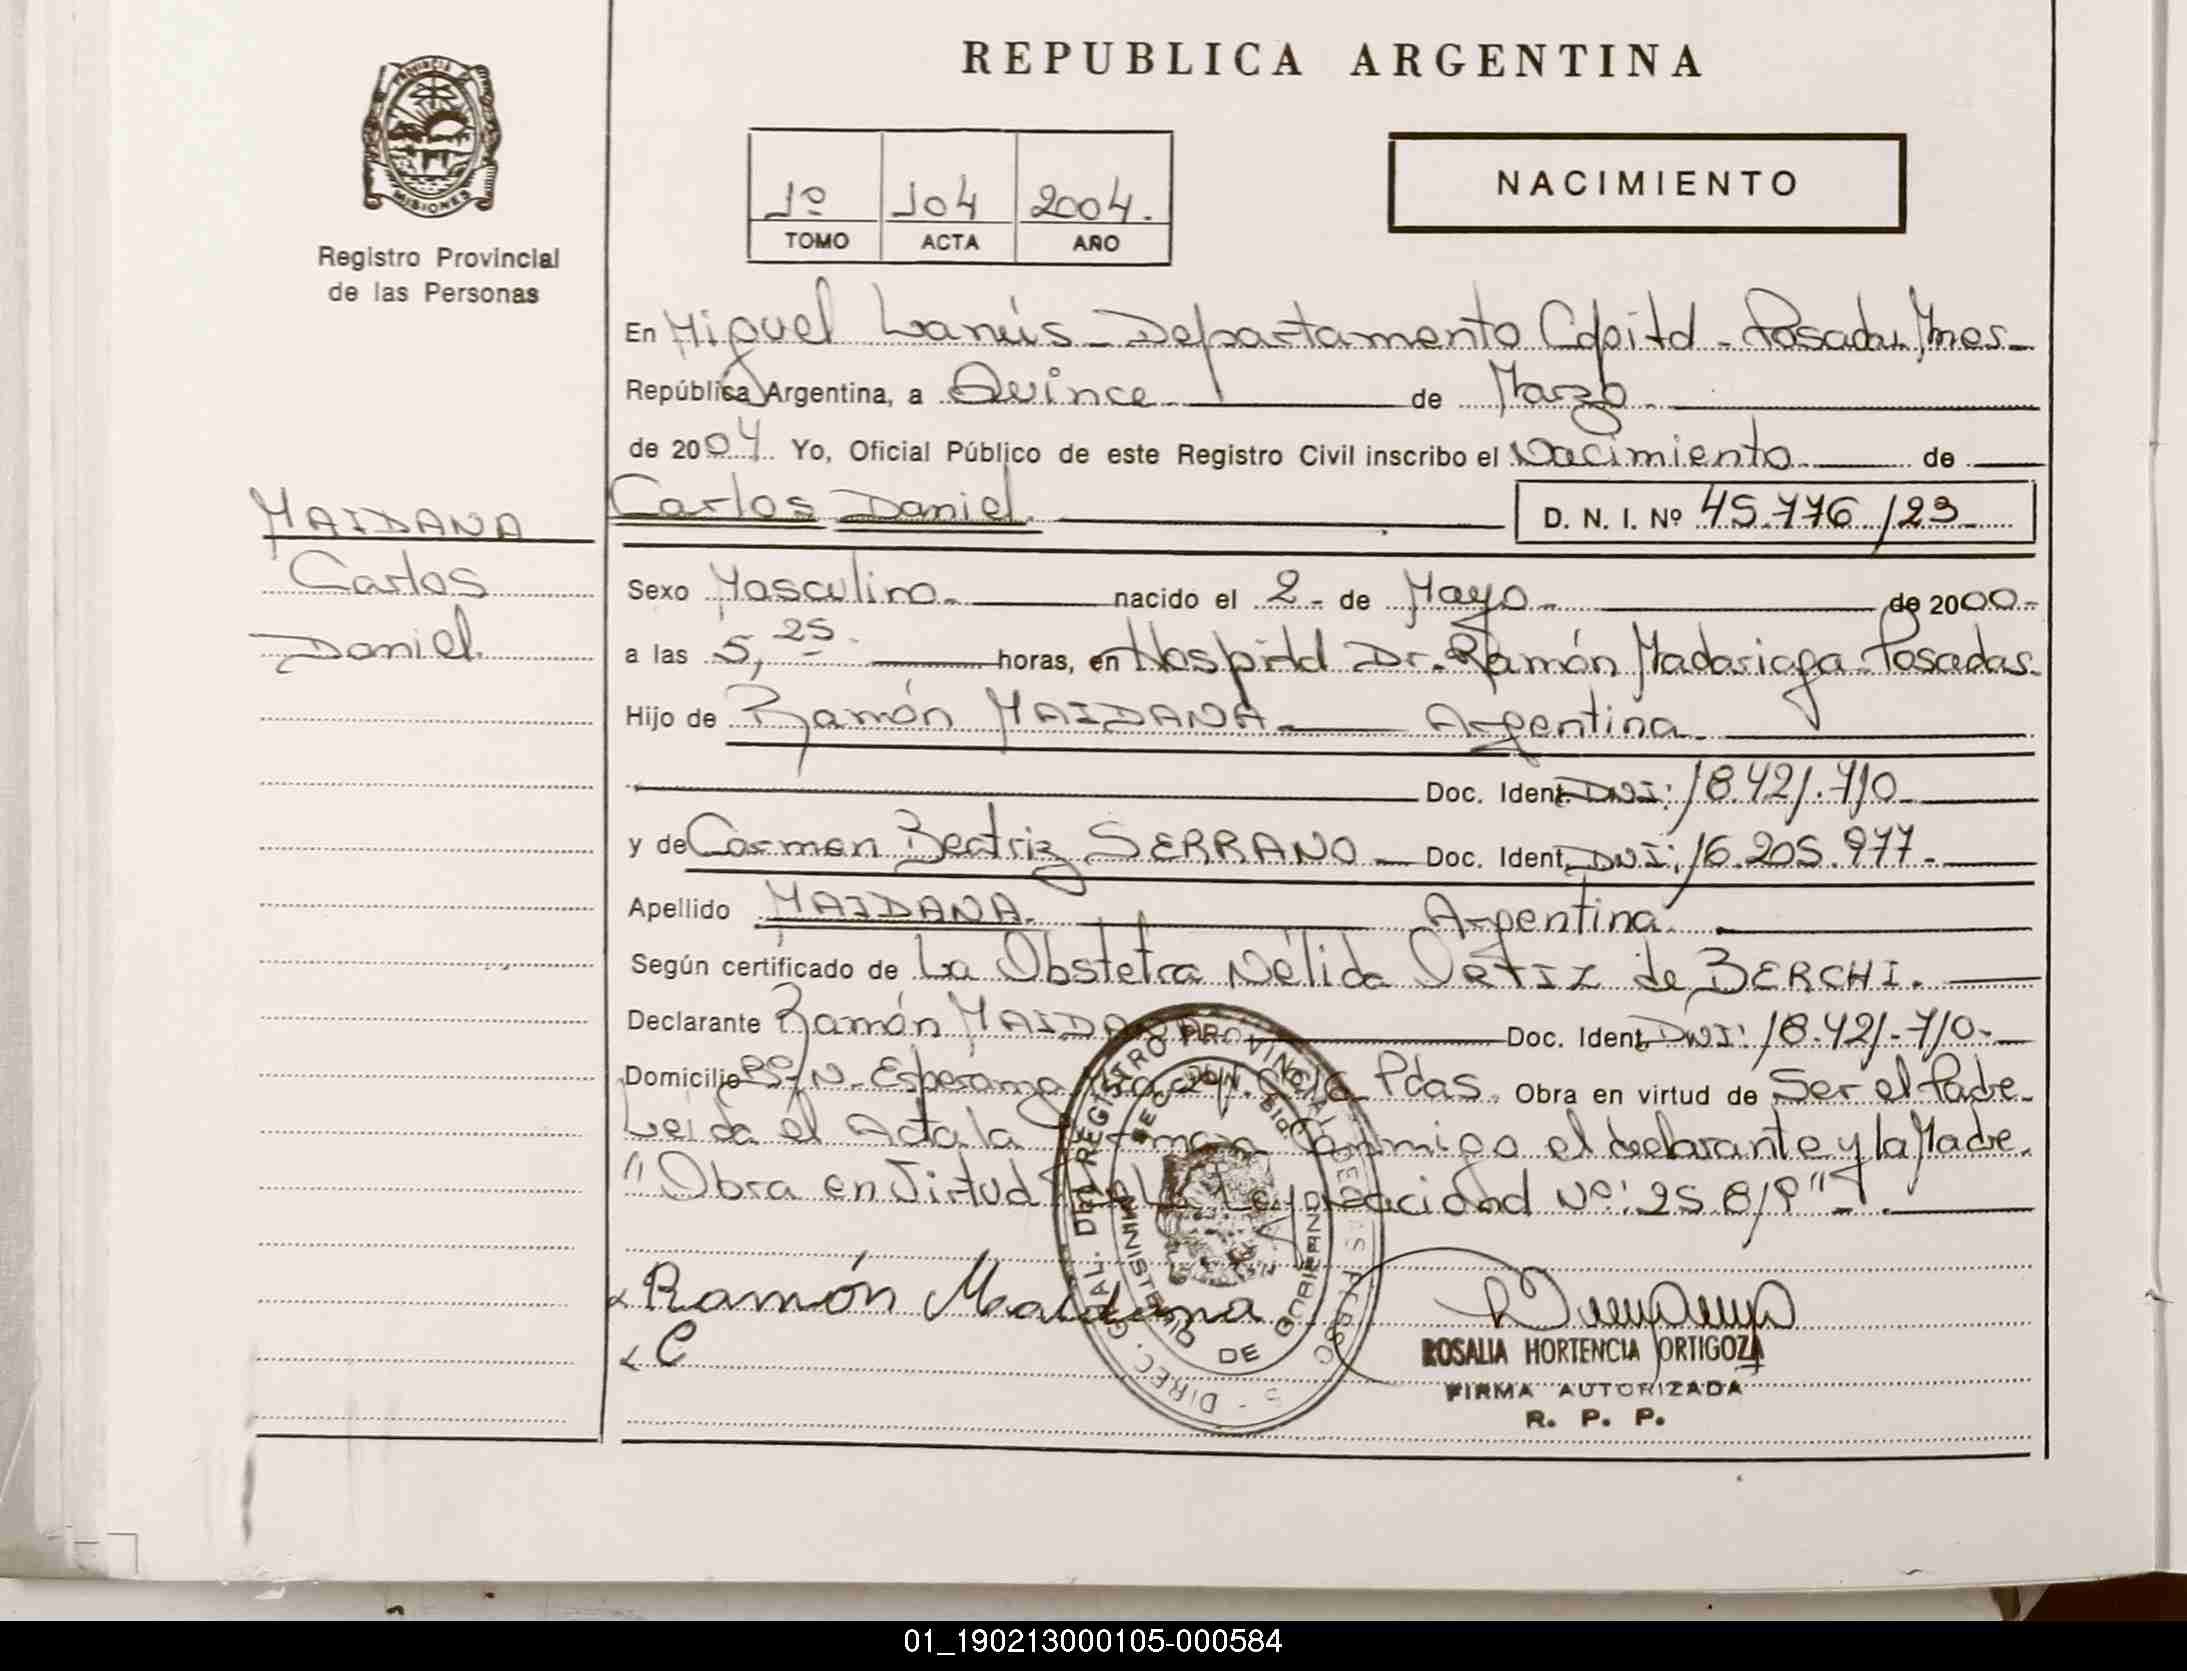 REPUBLICA ARGENTINA
PROVINCIA DE
MISIONES
Registro Provincial
de las Personas
1º 104 2004.
TOMO ACTA AÑO
NACIMIENTO
En Miguel Lanús - Departamento Capital - Posadas Mnes -
República Argentina, a Quince de Marzo
de 2004 Yo, Oficial Público de este Registro Civil inscribo el Nacimiento de
Carlos Daniel. D. N. I. Nº 45.776 123
MAIDANA
Carlos
Daniel.
Sexo Masculino. nacido el 2 - de Mayo - de 2000 -
a las 5,25 horas, en Hospital Dr. Ramón Madariaga - Posadas.
Hijo de Ramón MAIDANA - Argentina
Doc. Ident. DNI: 18.421.710
y de Carmen Beatriz SERRANO - Doc. Ident. DNI: 16.205.977 -
Apellido MAIDANA. Argentina
Según certificado de La Obstetra Nélida ORTIZ de BERCHI.
Declarante Ramón MAIDANA Doc. Ident. DNI: 18.421.710 -
Domicilio Bº N. Esperanza Pdas. Obra en virtud de Ser el Padre -
Leida el Acta la firman Conmigo el declarante y la Madre.
"Obra en Virtud de la Ley Nacional Nº: 25.819" -
Ramón Maidana
C
DIREC. GRAL. DEL REGISTRO PROVINCIAL DE LAS PERSONAS
MINISTERIO DE GOBIERNO
ROSALIA HORTENCIA ORTIGOZA
FIRMA AUTORIZADA
R. P. P.
01_190213000105-000584